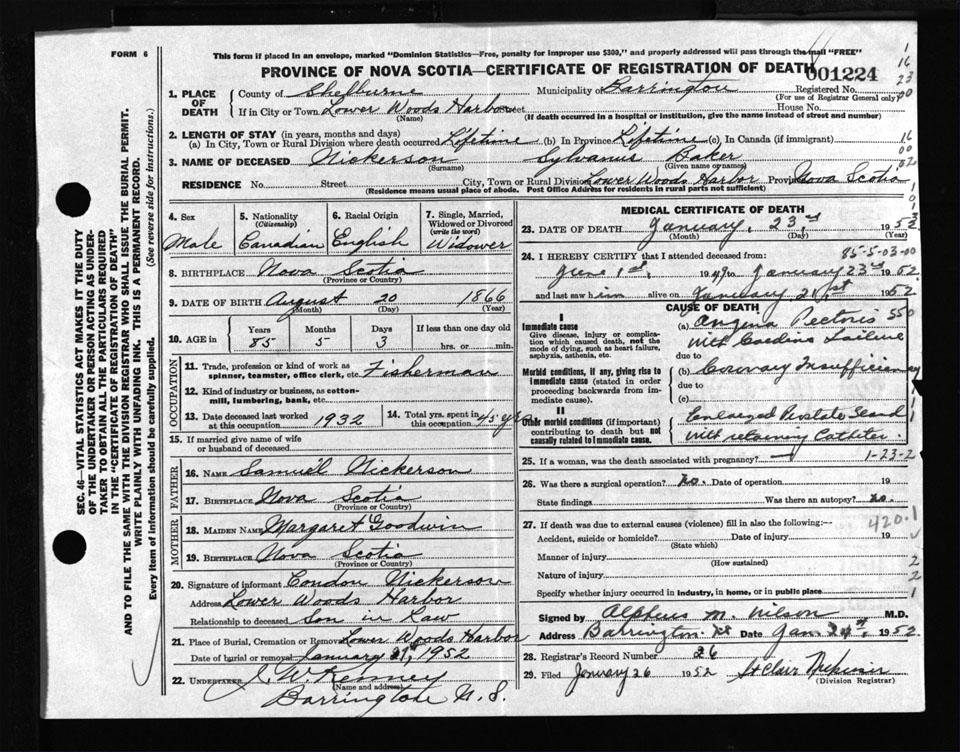 FORM 6
This form if placed in an envelope, marked "Dominion Statistics—Free, penalty for improper use $300," and properly addressed will pass through the mail "FREE"
PROVINCE OF NOVA SCOTIA—CERTIFICATE OF REGISTRATION OF DEATH
001224
1
16
23
00
1. PLACE OF DEATH
County of Shelburne Municipality of Barrington Registered No.
(For use of Registrar General only)
If in City or Town Lower Woods Harbor Street House No.
(Name) (If death occurred in a hospital or institution, give the name instead of street and number)
2. LENGTH OF STAY (in years, months and days)
(a) In City, Town or Rural Division where death occurred Lifetime (b) In Province Lifetime (c) In Canada (if immigrant)
16
00
02
3. NAME OF DECEASED Nickerson Sylvanus Baker
(Surname) (Given name or names)
RESIDENCE No. Street City, Town or Rural Division Lower Woods Harbor Province Nova Scotia
(Residence means usual place of abode. Post Office Address for residents in rural parts not sufficient)
SEC. 46—VITAL STATISTICS ACT MAKES IT THE DUTY
OF THE UNDERTAKER OR PERSON ACTING AS UNDER-
TAKER TO OBTAIN ALL THE PARTICULARS REQUIRED
IN THE "CERTIFICATE OF REGISTRATION OF DEATH"
AND TO FILE THE SAME WITH THE DIVISION REGISTRAR WHO SHALL ISSUE THE BURIAL PERMIT.
WRITE PLAINLY WITH UNFADING INK. THIS IS A PERMANENT RECORD.
Every item of information should be carefully supplied. (See reverse side for instructions).
4. Sex
Male
5. Nationality
(Citizenship)
Canadian
6. Racial Origin
English
7. Single, Married, Widowed or Divorced
(write the word)
Widower
8. BIRTHPLACE Nova Scotia
(Province or Country)
9. DATE OF BIRTH August 20 1866
(Month) (Day) (Year)
10. AGE in
Years Months Days If less than one day old
85 5 3 hrs. or min.
OCCUPATION
11. Trade, profession or kind of work as
spinner, teamster, office clerk, etc. Fisherman
12. Kind of industry or business, as cotton-
mill, lumbering, bank, etc.
13. Date deceased last worked
at this occupation 1932
14. Total yrs. spent in
this occupation 45 yrs
15. If married give name of wife
or husband of deceased
FATHER
16. NAME Samuel Nickerson
17. BIRTHPLACE Nova Scotia
(Province or Country)
MOTHER
18. MAIDEN NAME Margaret Goodwin
19. BIRTHPLACE Nova Scotia
(Province or Country)
20. Signature of informant Condon Nickerson
Address Lower Woods Harbor
Relationship to deceased Son in Law
21. Place of Burial, Cremation or Removal Lower Woods Harbor
Date of burial or removal January 1952
22. UNDERTAKER J. W. Kenney
(Name and address)
Barrington N.S.
MEDICAL CERTIFICATE OF DEATH
23. DATE OF DEATH January, 23rd 1952
(Month) (Day) (Year)
85-5-03-00
24. I HEREBY CERTIFY that I attended deceased from:
June 1st, 1949 to January 23rd 1952
and last saw him alive on January 21st 1952
CAUSE OF DEATH
I
Immediate cause
Give disease, injury or complica-
tion which caused death, not the
mode of dying, such as heart failure,
asphyxia, asthenia, etc.
(a) Angina Pectoris
with Cardiac Failure
due to
Morbid conditions, if any, giving rise to
immediate cause (stated in order
proceeding backwards from im-
mediate cause).
(b) Coronary Insufficiency
due to
(c)
II
Other morbid conditions (if important)
contributing to death but not
causally related to immediate cause.
Enlarged Prostate Gland
with retaining Catheter.
25. If a woman, was the death associated with pregnancy? —
1-23-2
26. Was there a surgical operation? no. Date of operation 19
State findings Was there an autopsy? no.
27. If death was due to external causes (violence) fill in also the following:—
420.1
Accident, suicide or homicide? Date of injury 19
(State which)
Manner of injury 2
(How sustained)
Nature of injury 2
Specify whether injury occurred in industry, in home, or in public place 1
Signed by Alpheus M. Wilson M.D.
Address Barrington, NS Date Jan. 24th, 1952
28. Registrar's Record Number 26
29. Filed January 26 1952 St Clair
(Division Registrar)